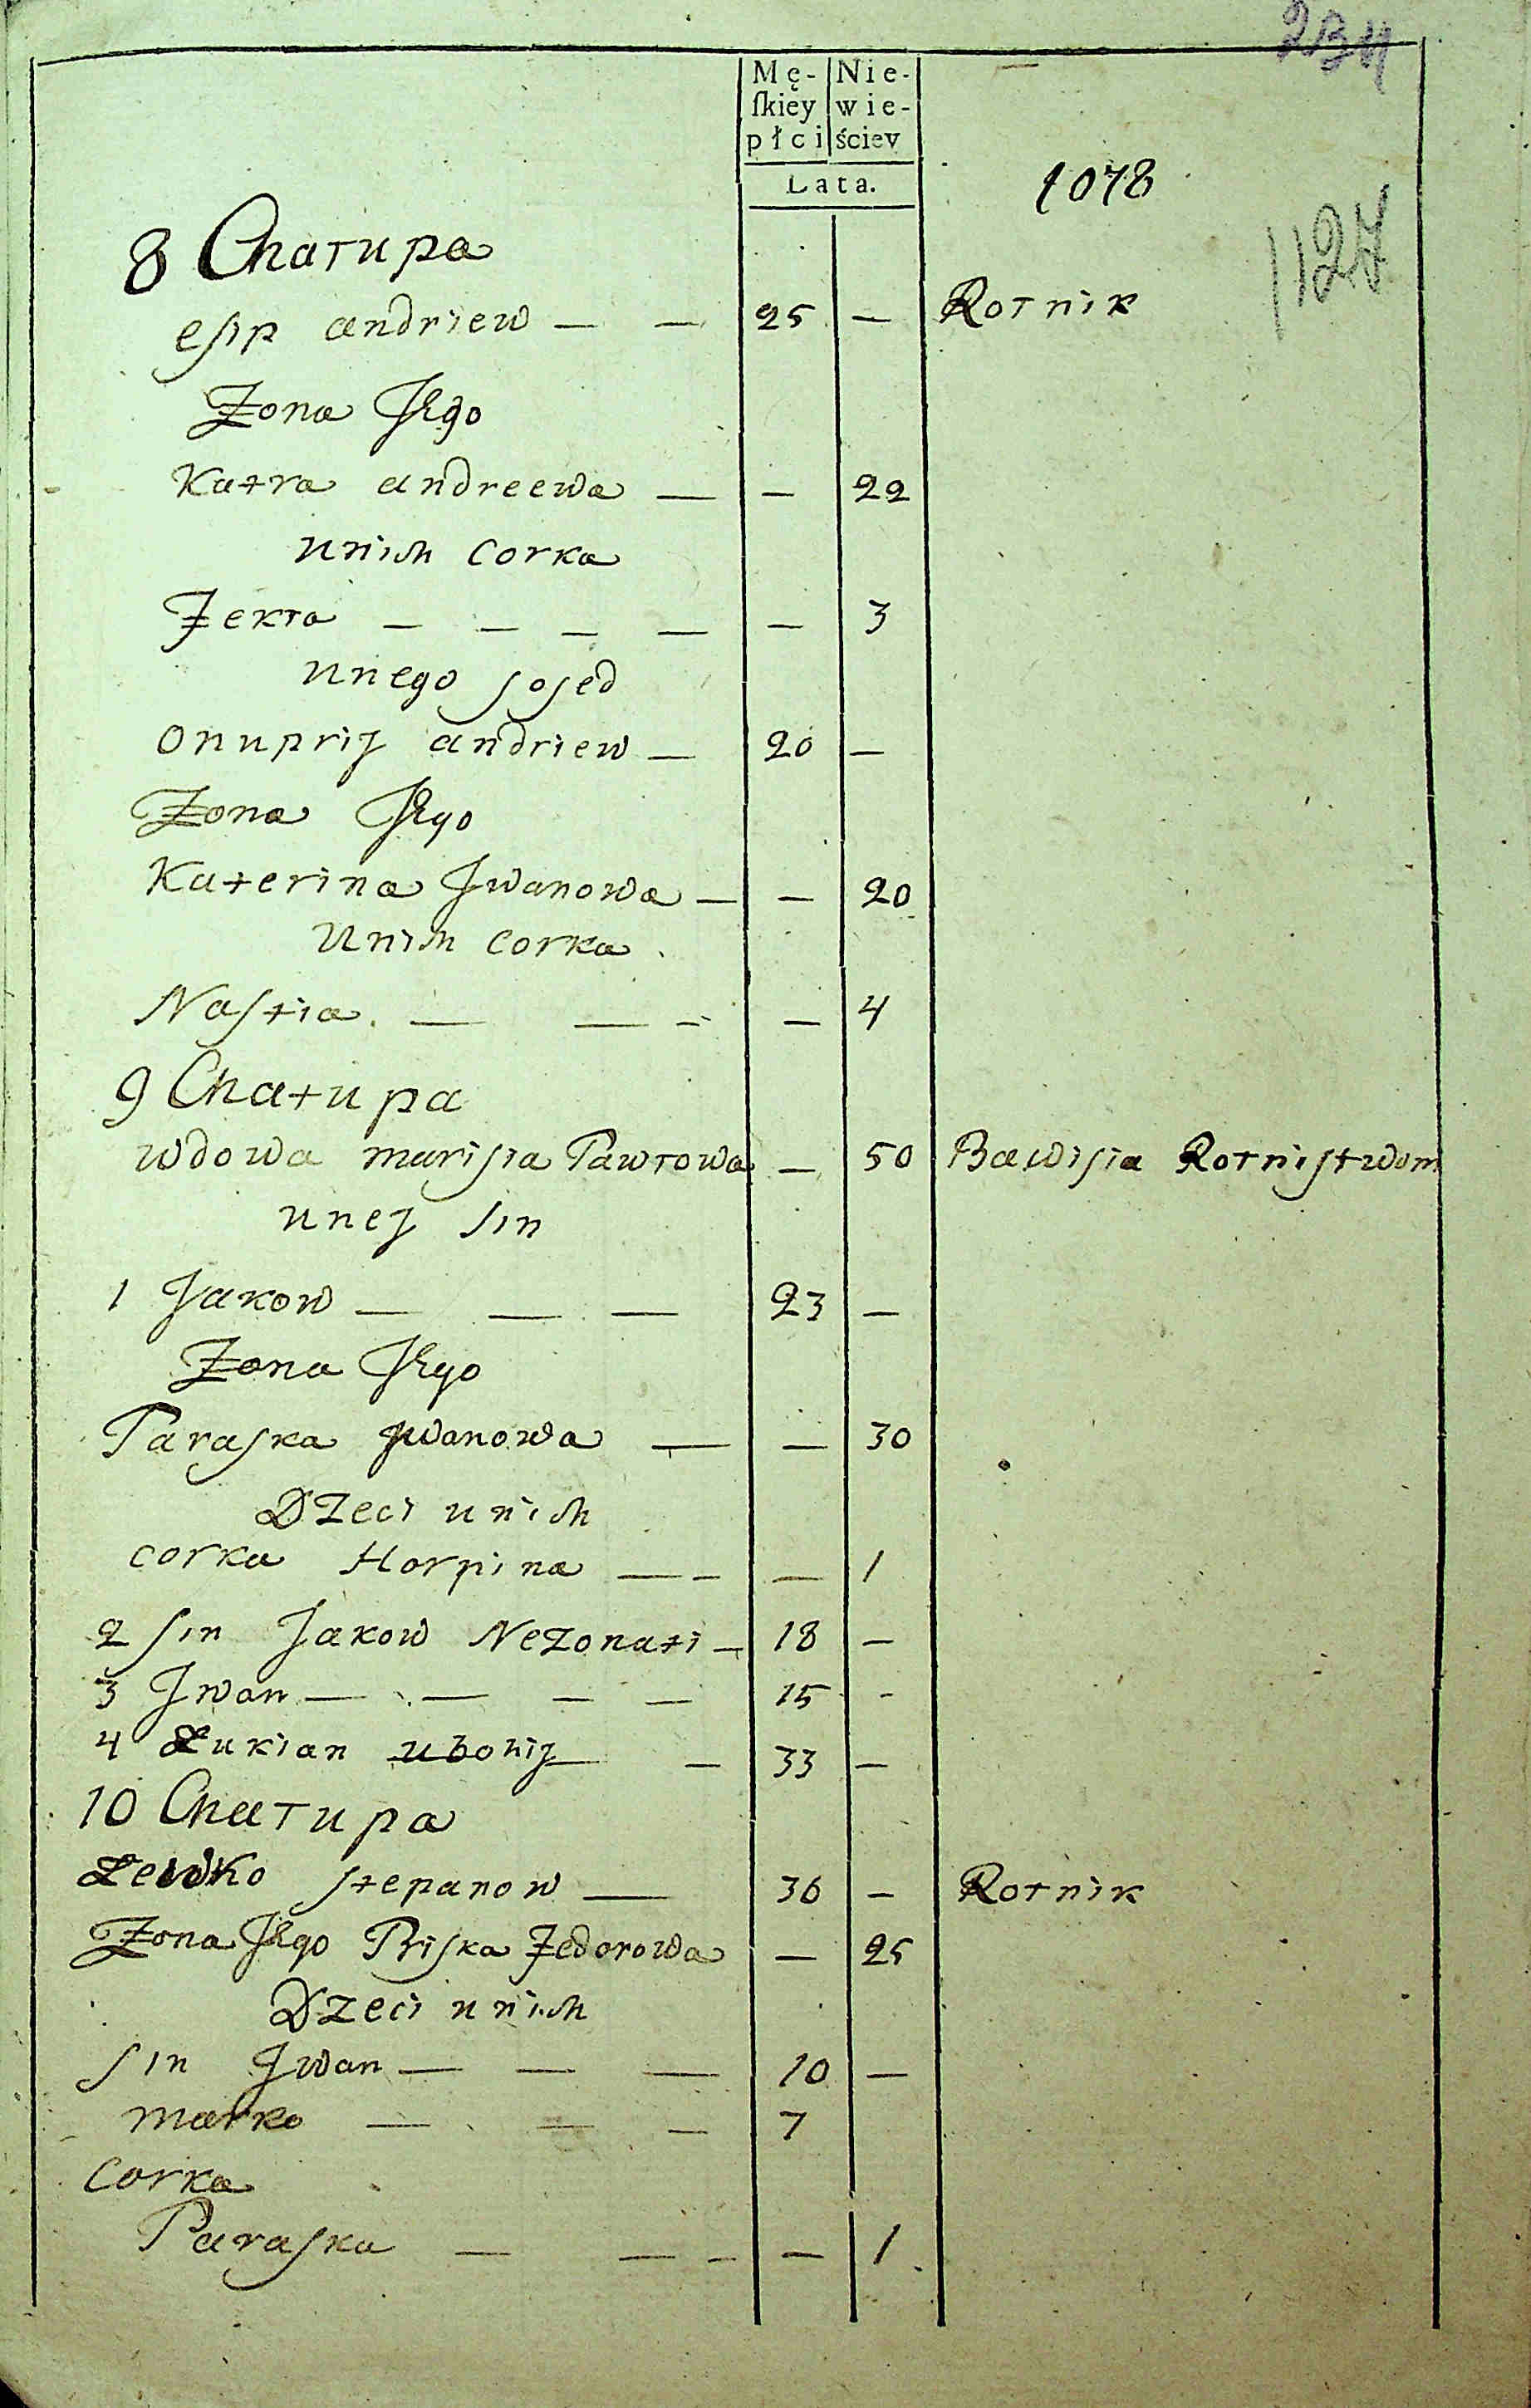 234
Mę- Nie-
ſkiéy wie-
płci ściey
Lata.
1078
1127
8 Chałupa
esip andriew — — 25 — Rolnik
Zona Jego
Katra andreewa — — 22
unich Corka
Fekła — — — — — 3
unego sosed
Onuprij andriew — 20 —
Zona Jego
Katerina Jwanowa — — 20
Unich corka
Nastia — — — — 4
9 Chałupa
wdowa marisia Pawłowa — 50 Bawisia Rolnistwom
unej sin
1 Jakow — — — 23 —
Zona Jego
Paraska Jwanowa — — 30
Dzeci unich
corka Horpina — — — 1
2 sin Jakow Nezonati — 18 —
3 Jwan — — — — 15 -
4 Łukian ubohij — 33 —
10 Chałupa
Lewko stepanow — 36 — Rolnik
Zona Jego Priska Fedorowa — 25
Dzeci unich
sin Jwan — — — 10 —
marko — — — 7
Corka
Paraska — — — — 1